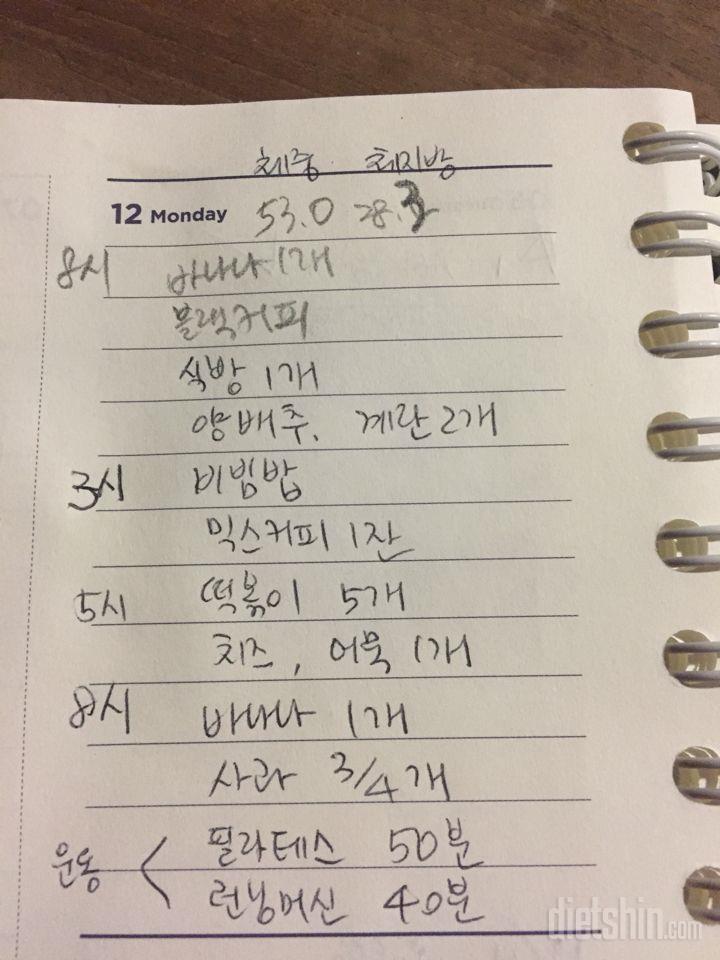 체중 체지방
12 Monday 53.0 28.3
8시 바나나 1개
블랙커피
식빵 1개
양배추, 계란 2개
3시 비빔밥
믹스커피 1잔
5시 떡볶이 5개
치즈, 어묵 1개
8시 바나나 1개
사과 3/4개
운동 < 필라테스 50분
런닝머신 40분
dietshin.com